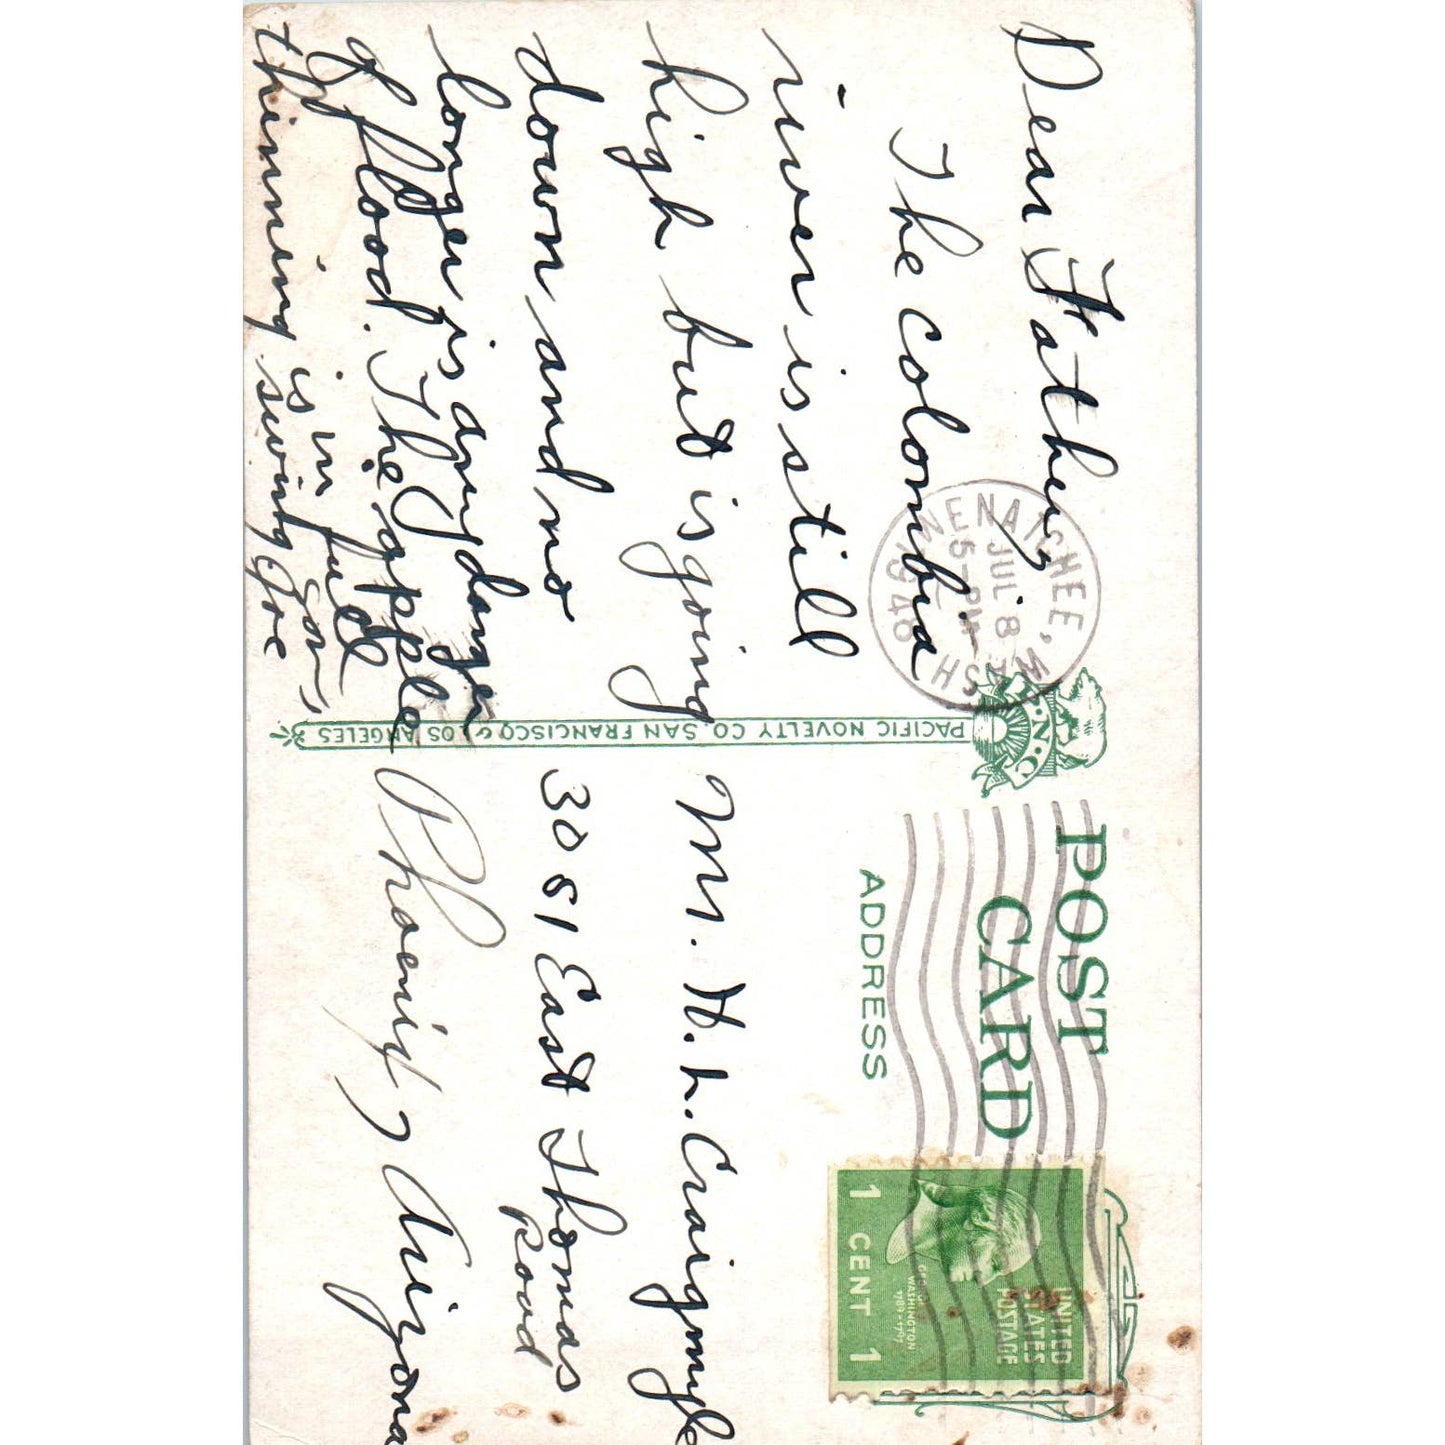 Dear Father,
The Colombia
river is still
high but is going
down and no
longer is any danger
of flood. The apple
thinning is in full
swing now
Joe
WENATCHEE, WASH
JUL 8
5-PM
1948
P.N.C.
POST CARD
ADDRESS
UNITED
STATES
POSTAGE
GEORGE
WASHINGTON
1789-1797
1 CENT 1
PACIFIC NOVELTY CO. SAN FRANCISCO & LOS ANGELES
Mr. H. L. Craigmyle
3081 East Thomas
Road
Phoenix, Arizona